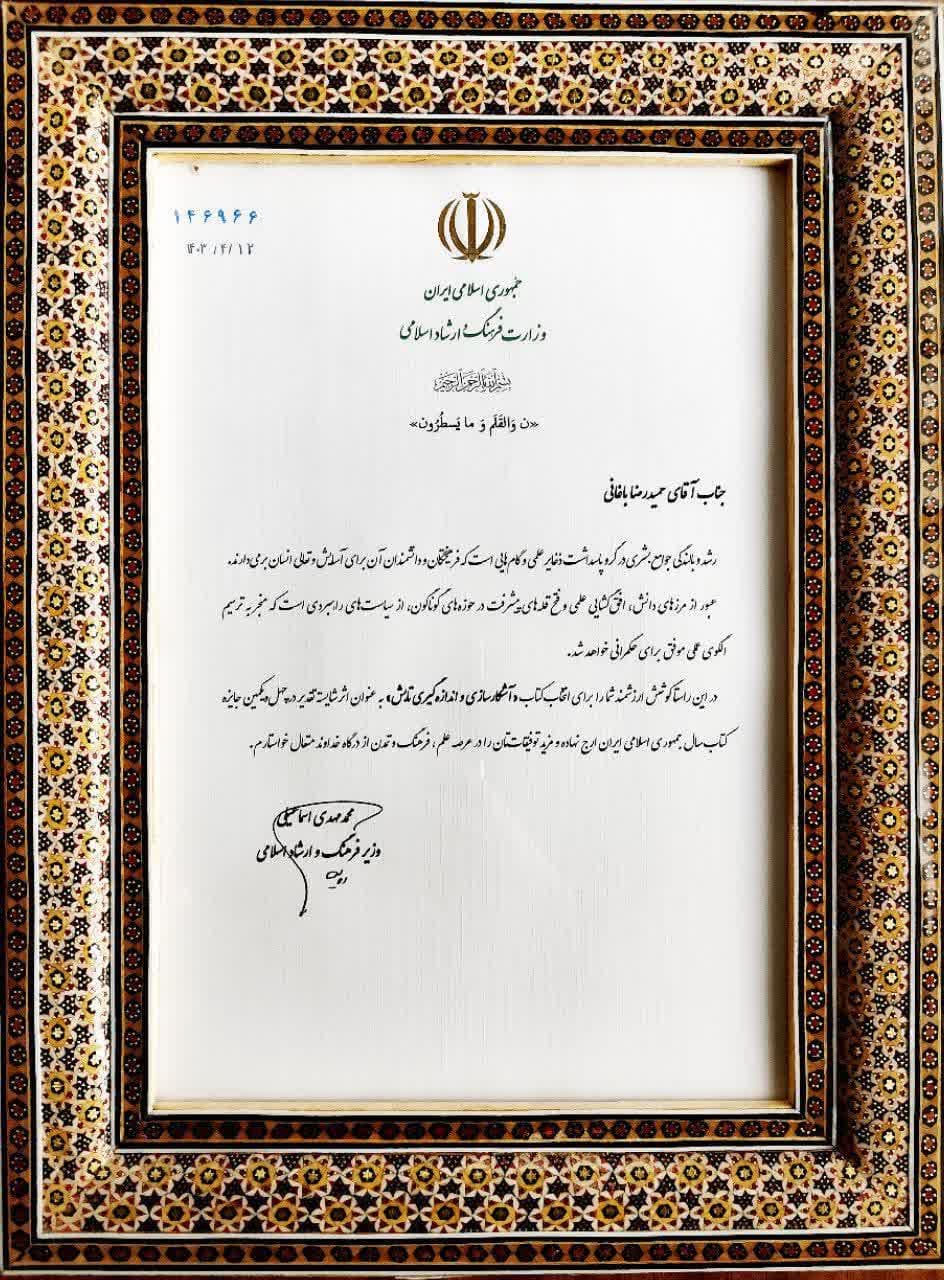 ۱۴۶۹۶۶
۱۴۰۳/۴/۱۲
جمهوری اسلامی ایران
وزارت فرهنگ و ارشاد اسلامی
بسم الله الرحمن الرحیم
«ن وَالقَلَم وَ ما یَسطُرُون»
جناب آقای حمیدرضا باغانی
رشد و بالندگی جوامع بشری در گرو پاسداشت ذخایر علمی و گام هایی است که فرهیختگان و دانشمندان آن برای آسایش و تعالی انسان برمی دارند.
عبور از مرزهای دانش، افق گشایی علمی و فتح قله های پیشرفت در حوزه های گوناگون، از سیاست های راهبردی است که منجر به ترسیم
الگوی عملی موفق برای حکمرانی خواهد شد.
در این راستا کوشش ارزشمند شما را برای انتخاب کتاب «آشکارسازی و اندازه گیری تابش» به عنوان اثر شایسته تقدیر در چهل و یکمین جایزه
کتاب سال جمهوری اسلامی ایران ارج نهاده و مزید توفیقات تان را در عرصه علم، فرهنگ و تمدن از درگاه خداوند متعال خواستارم.
محمدمهدی اسماعیلی
وزیر فرهنگ و ارشاد اسلامی